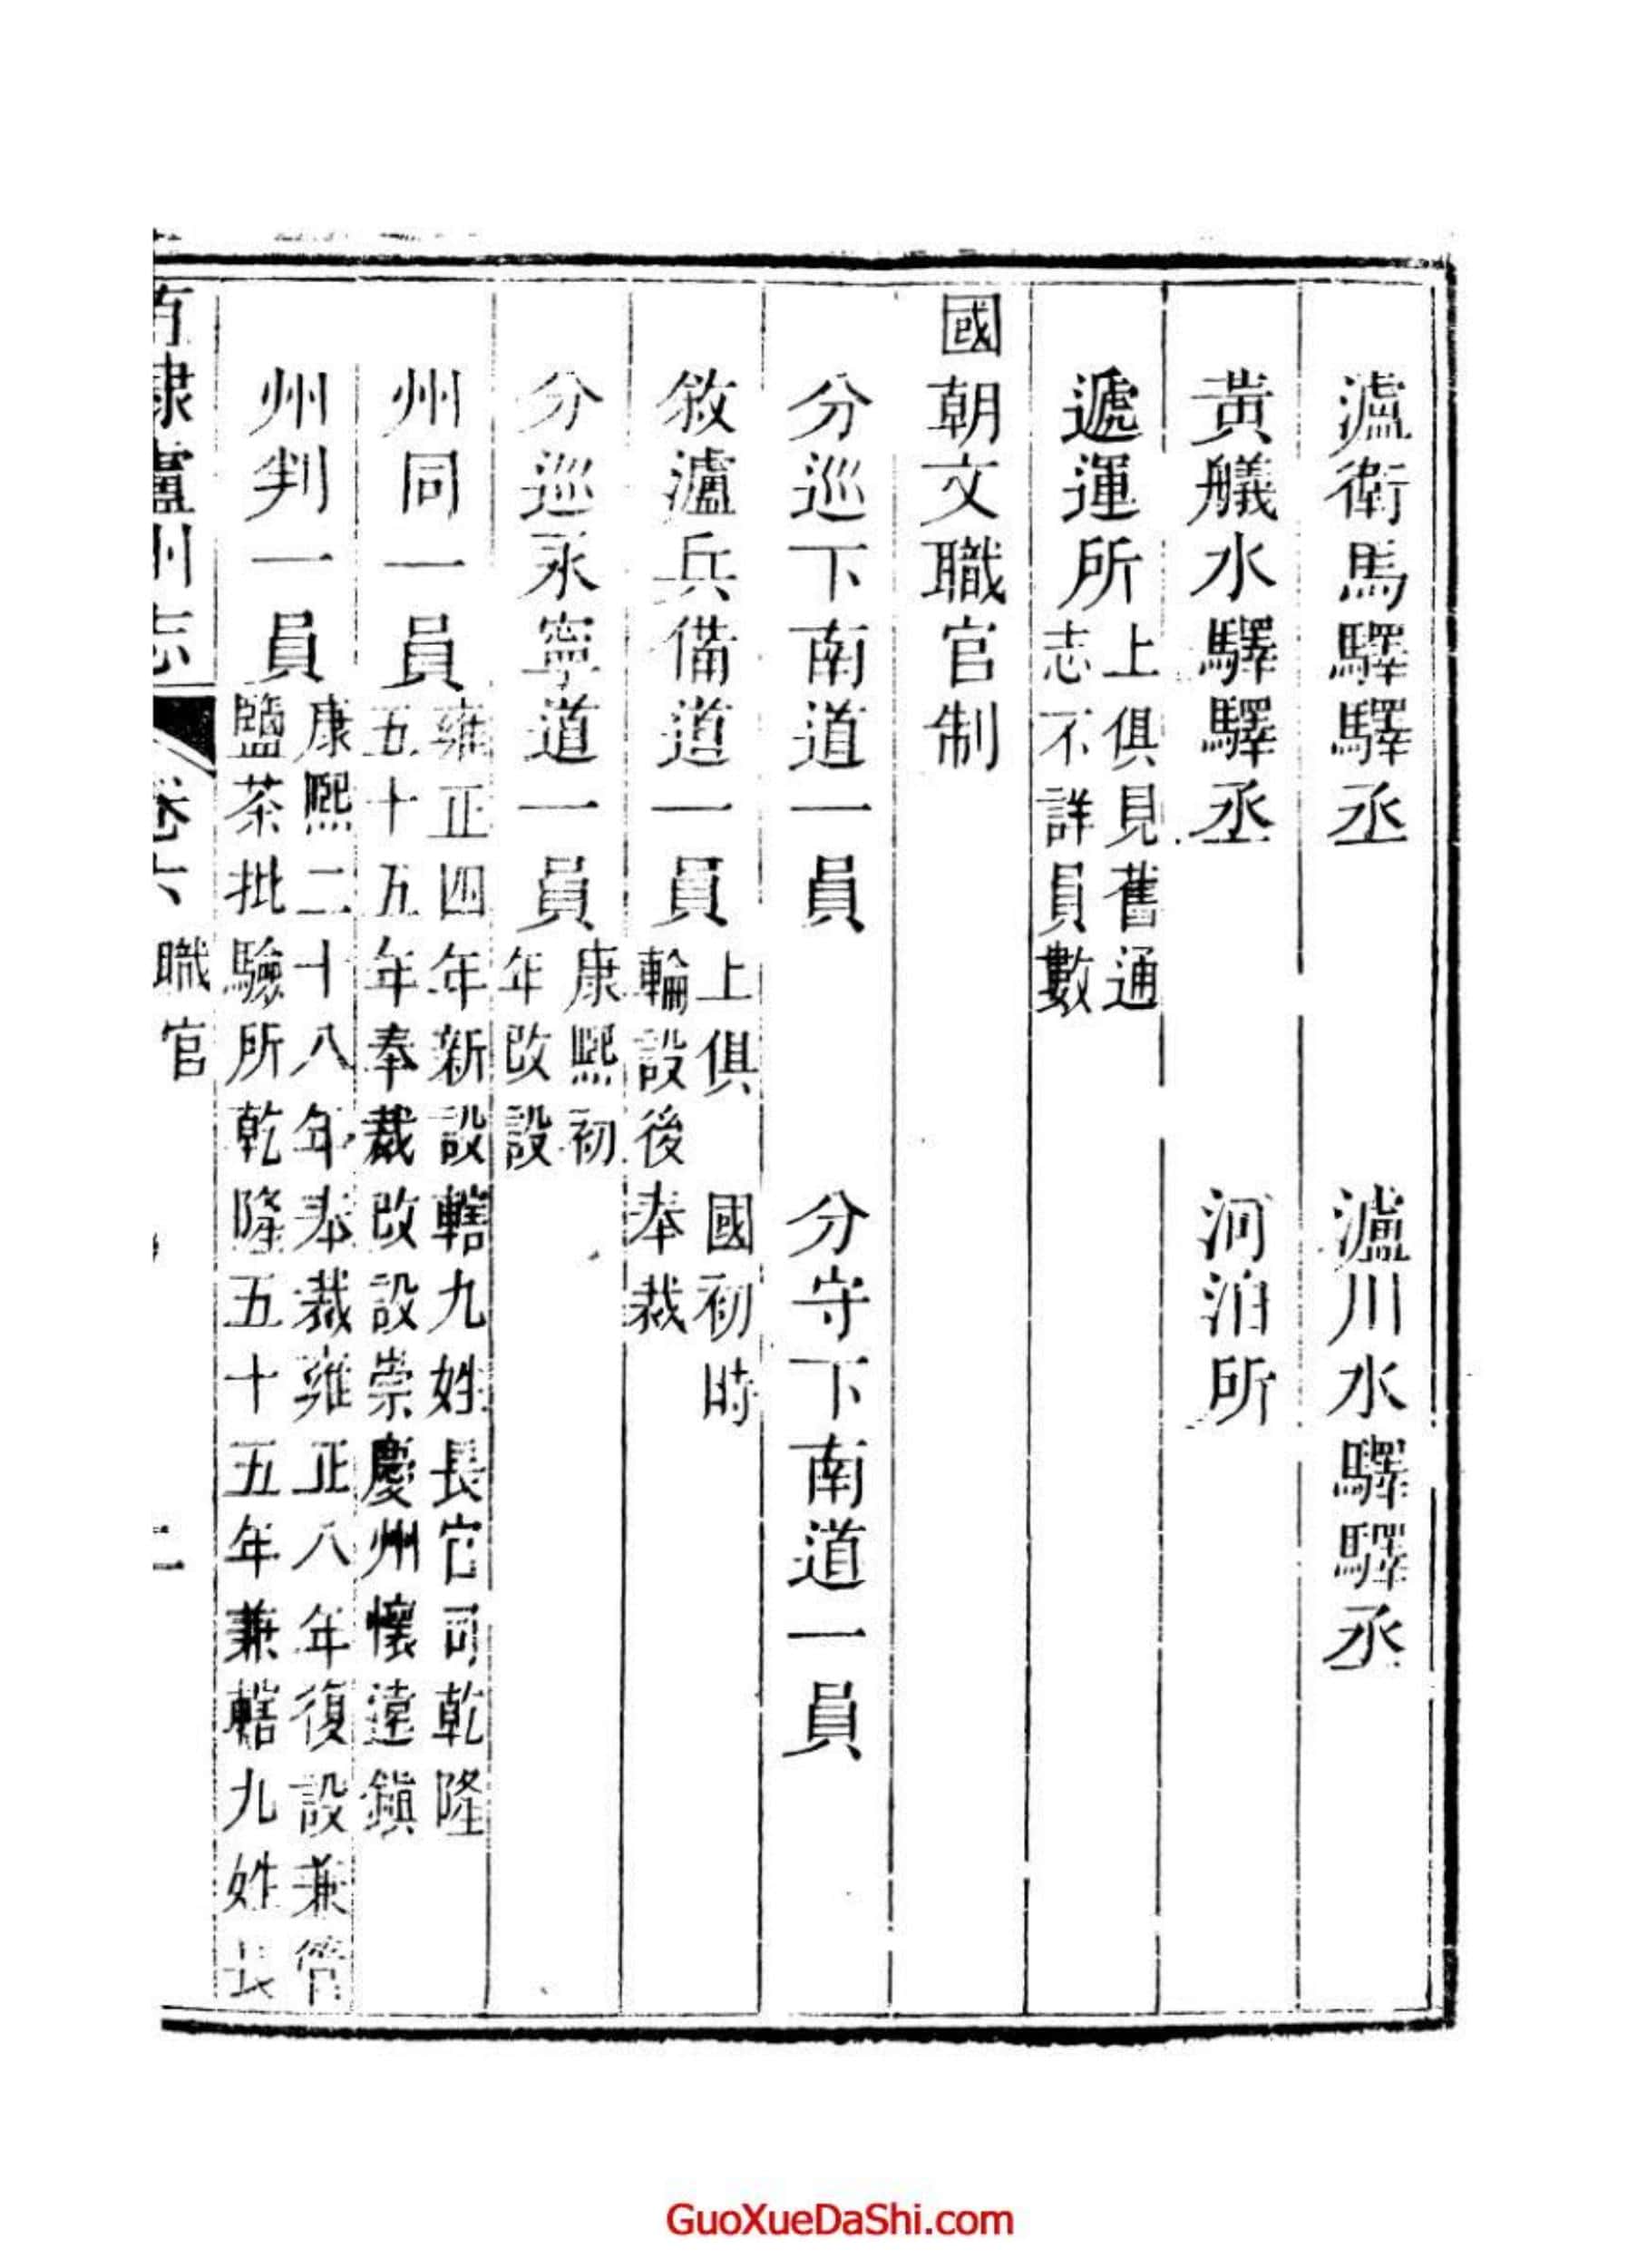 瀘衛馬驛驛丞　瀘川水驛驛丞
黃艤水驛驛丞　河泊所
遞運所上俱見舊通志不詳員數
國朝文職官制
分巡下南道一員　分守下南道一員
敘瀘兵備道一員上俱　國初時輪設後奉裁
分巡永寧道一員康熙初年改設
州同一員雍正四年新設轄九姓長官司乾隆五十五年奉裁改設崇慶州懷遠鎮
州判一員康熙二十八年奉裁雍正八年復設兼管鹽茶批驗所乾隆五十五年兼轄九姓長
直隸瀘州志　卷六　職官　二
GuoXueDaShi.com